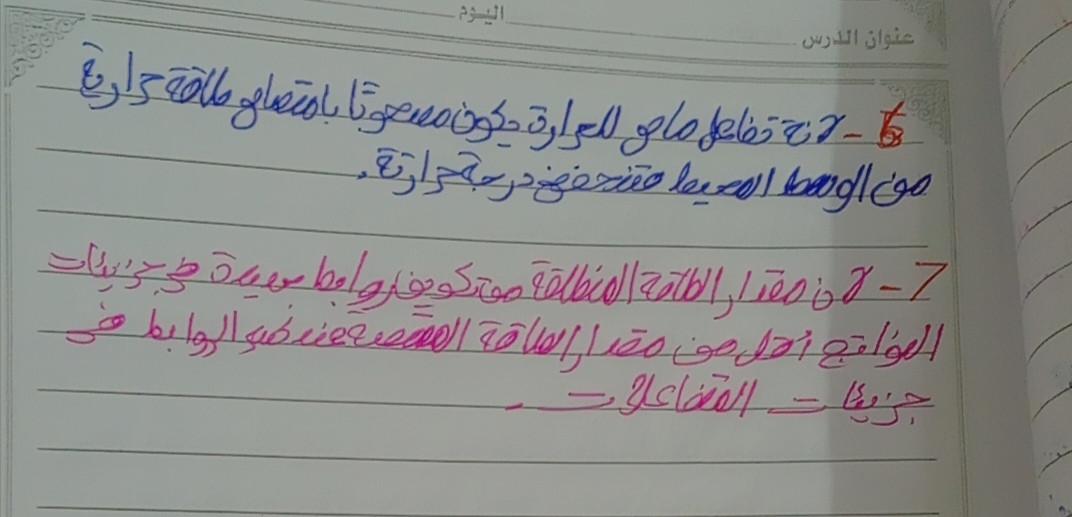 اليوم
عنوان الدرس
6- لانه تفاعل ماص للحرارة يكون مصحوبًا بامتصاص طاقة حرارية
من الوسط المحيط فتنخفض درجة حرارتة.
7- لان مقدار الطاقة المنطلقة من تكوين روابط جديدة في جزيئات
النواتج أقل من مقدار الطاقة الممتصة عند كسر الروابط في
جزيئات المتفاعلات.